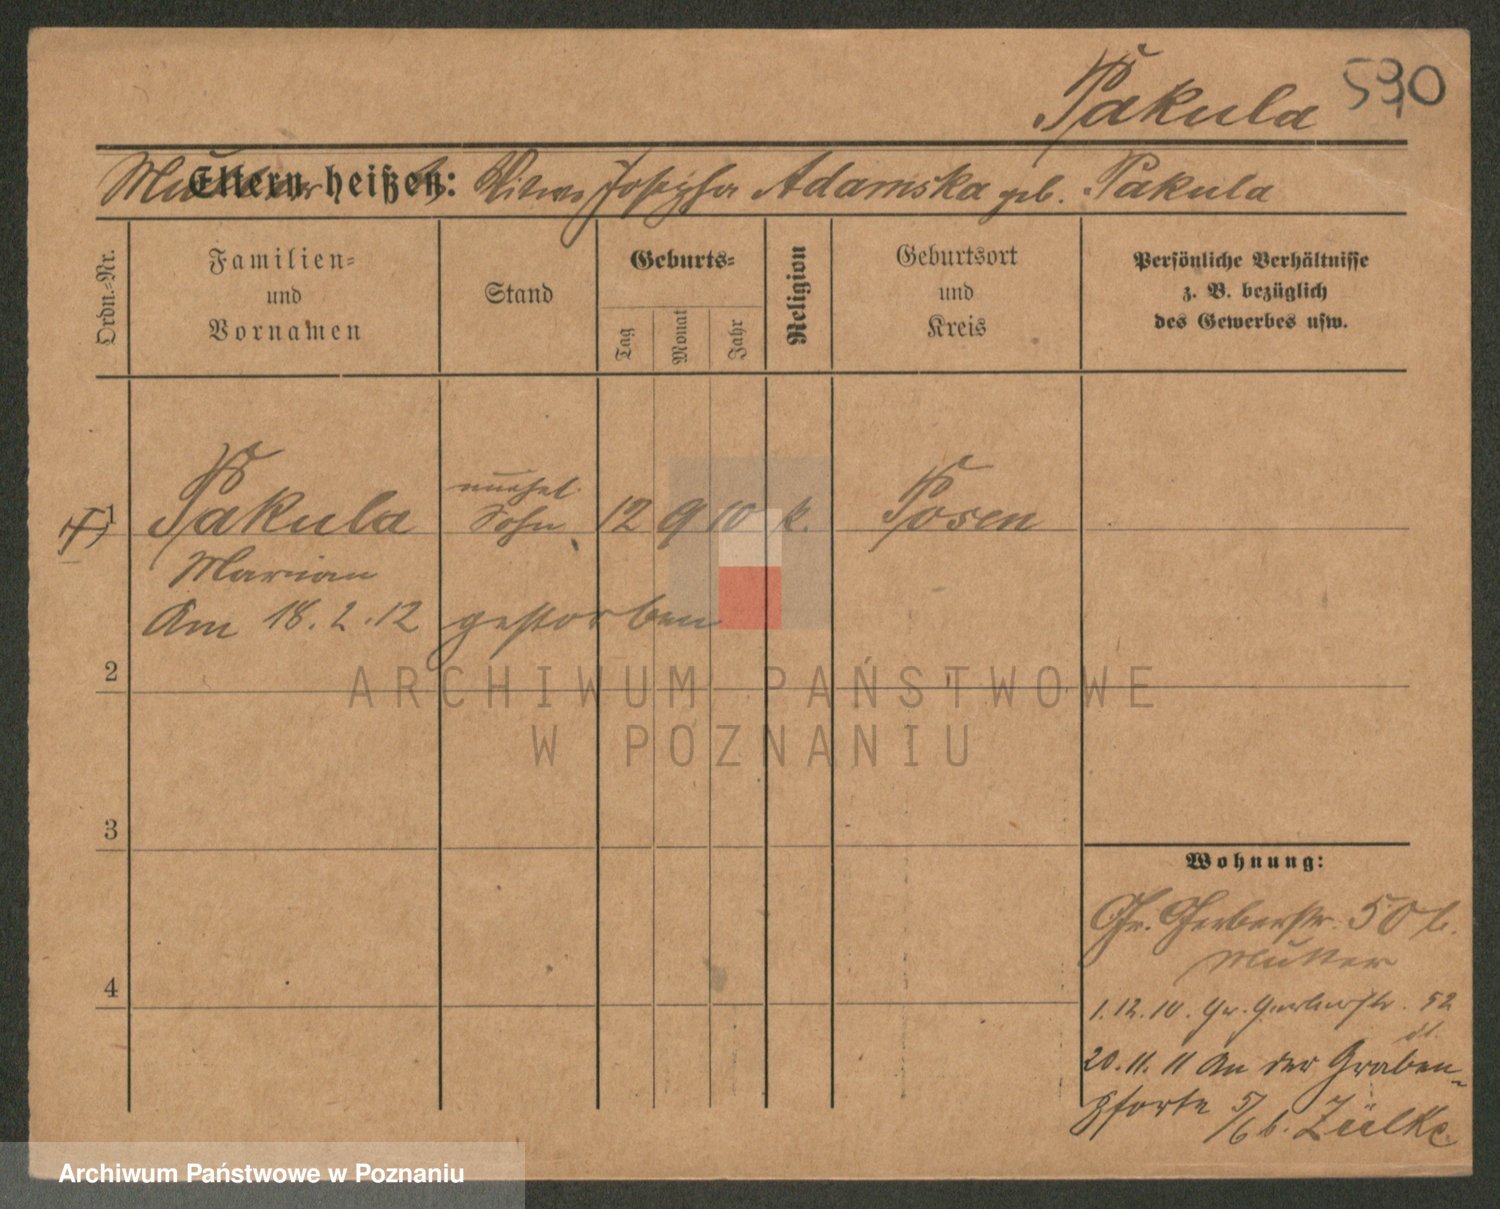 Pakula 590
Eltern heißen:
Mutter Witwe Josepha Adamska geb. Pakula
Ordn.-Nr.
Familien-
und
Vornamen
Stand
Geburts-
Tag
Monat
Jahr
Religion
Geburtsort
und
Kreis
Persönliche Verhältnisse
z. B. bezüglich
des Gewerbes usw.
unehel.
1 Pakula Sohn 12 9 10 k. Posen
Marian
Am 18.2.12 gestorben
2
3
4
ARCHIWUM PAŃSTWOWE
W POZNANIU
Wohnung:
Gr. Gerberstr. 50 b.
Mutter
1.12.10. Gr. Gerberstr. 52
20.11.11 An der Graben-
pforte 5/6 b. Zülke
Archiwum Państwowe w Poznaniu